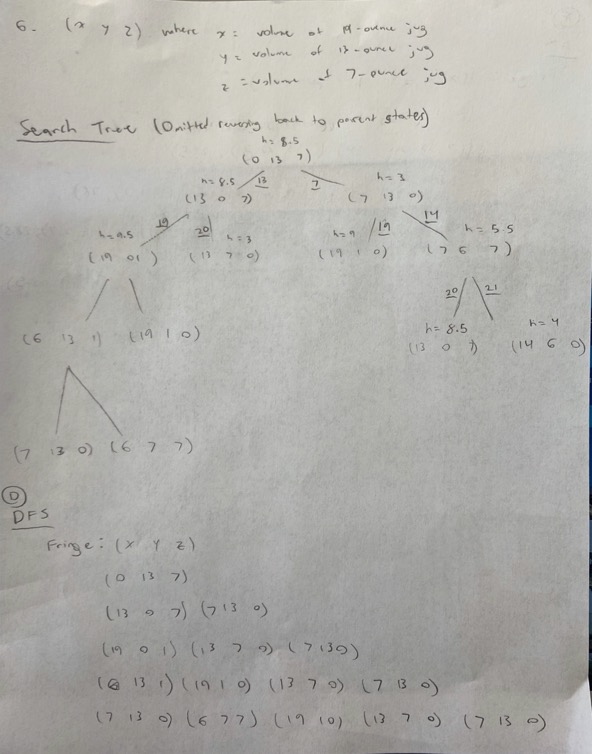 6. (x y z) where x = volume of 19-ounce jug
y = volume of 13-ounce jug
z = volume of 7-ounce jug
Search Tree (Omitted reversing back to parent states)
h = 8.5
(0 13 7)
h = 8.5 13 7 h = 3
(13 0 7) (7 13 0)
h = 9.5 19 20 h = 3 h = 9 19 14 h = 5.5
(19 0 1) (13 7 0) (19 1 0) (7 6 7)
20 21
(6 13 1) (19 1 0) h = 8.5 h = 4
(13 0 7) (14 6 0)
(7 13 0) (6 7 7)
D
DFS
Fringe: (x y z)
(0 13 7)
(13 0 7) (7 13 0)
(19 0 1) (13 7 0) (7 13 0)
(6 13 1) (19 1 0) (13 7 0) (7 13 0)
(7 13 0) (6 7 7) (19 1 0) (13 7 0) (7 13 0)